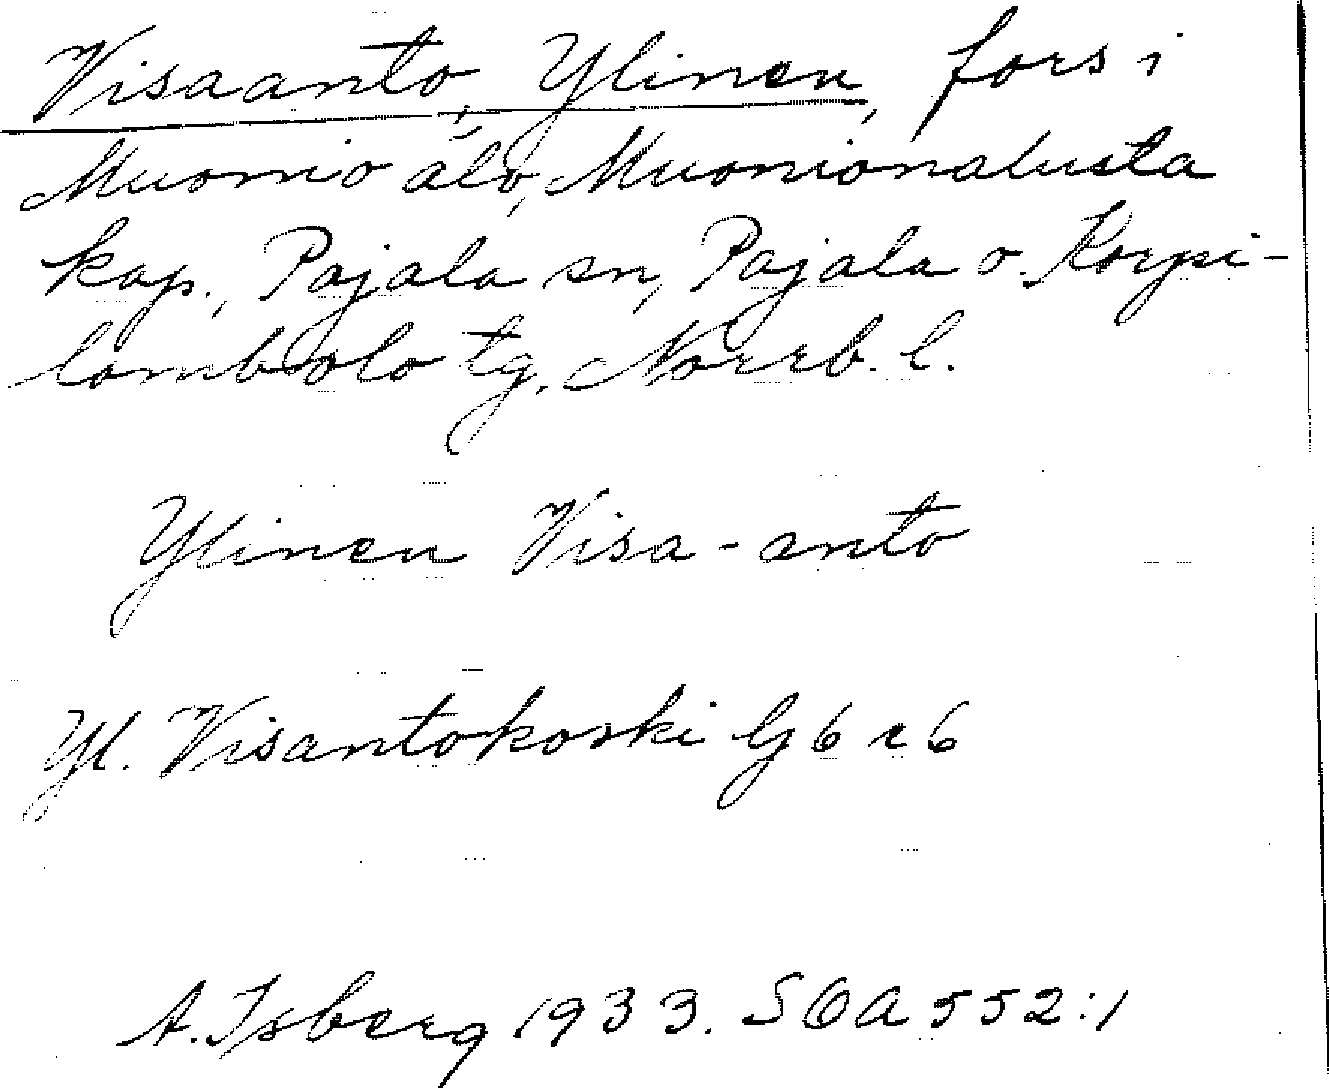 Visaanto, Ylinen, fors i
Muonio älv, Muonionalusta
kap., Pajala sn, Pajala o. Korpi-
lombolo tg, Norrb. l.
Ylinen Visa-anto
Yl. Visantokoski G 6 c 6
A. Isberg 1933. SOA 552:1